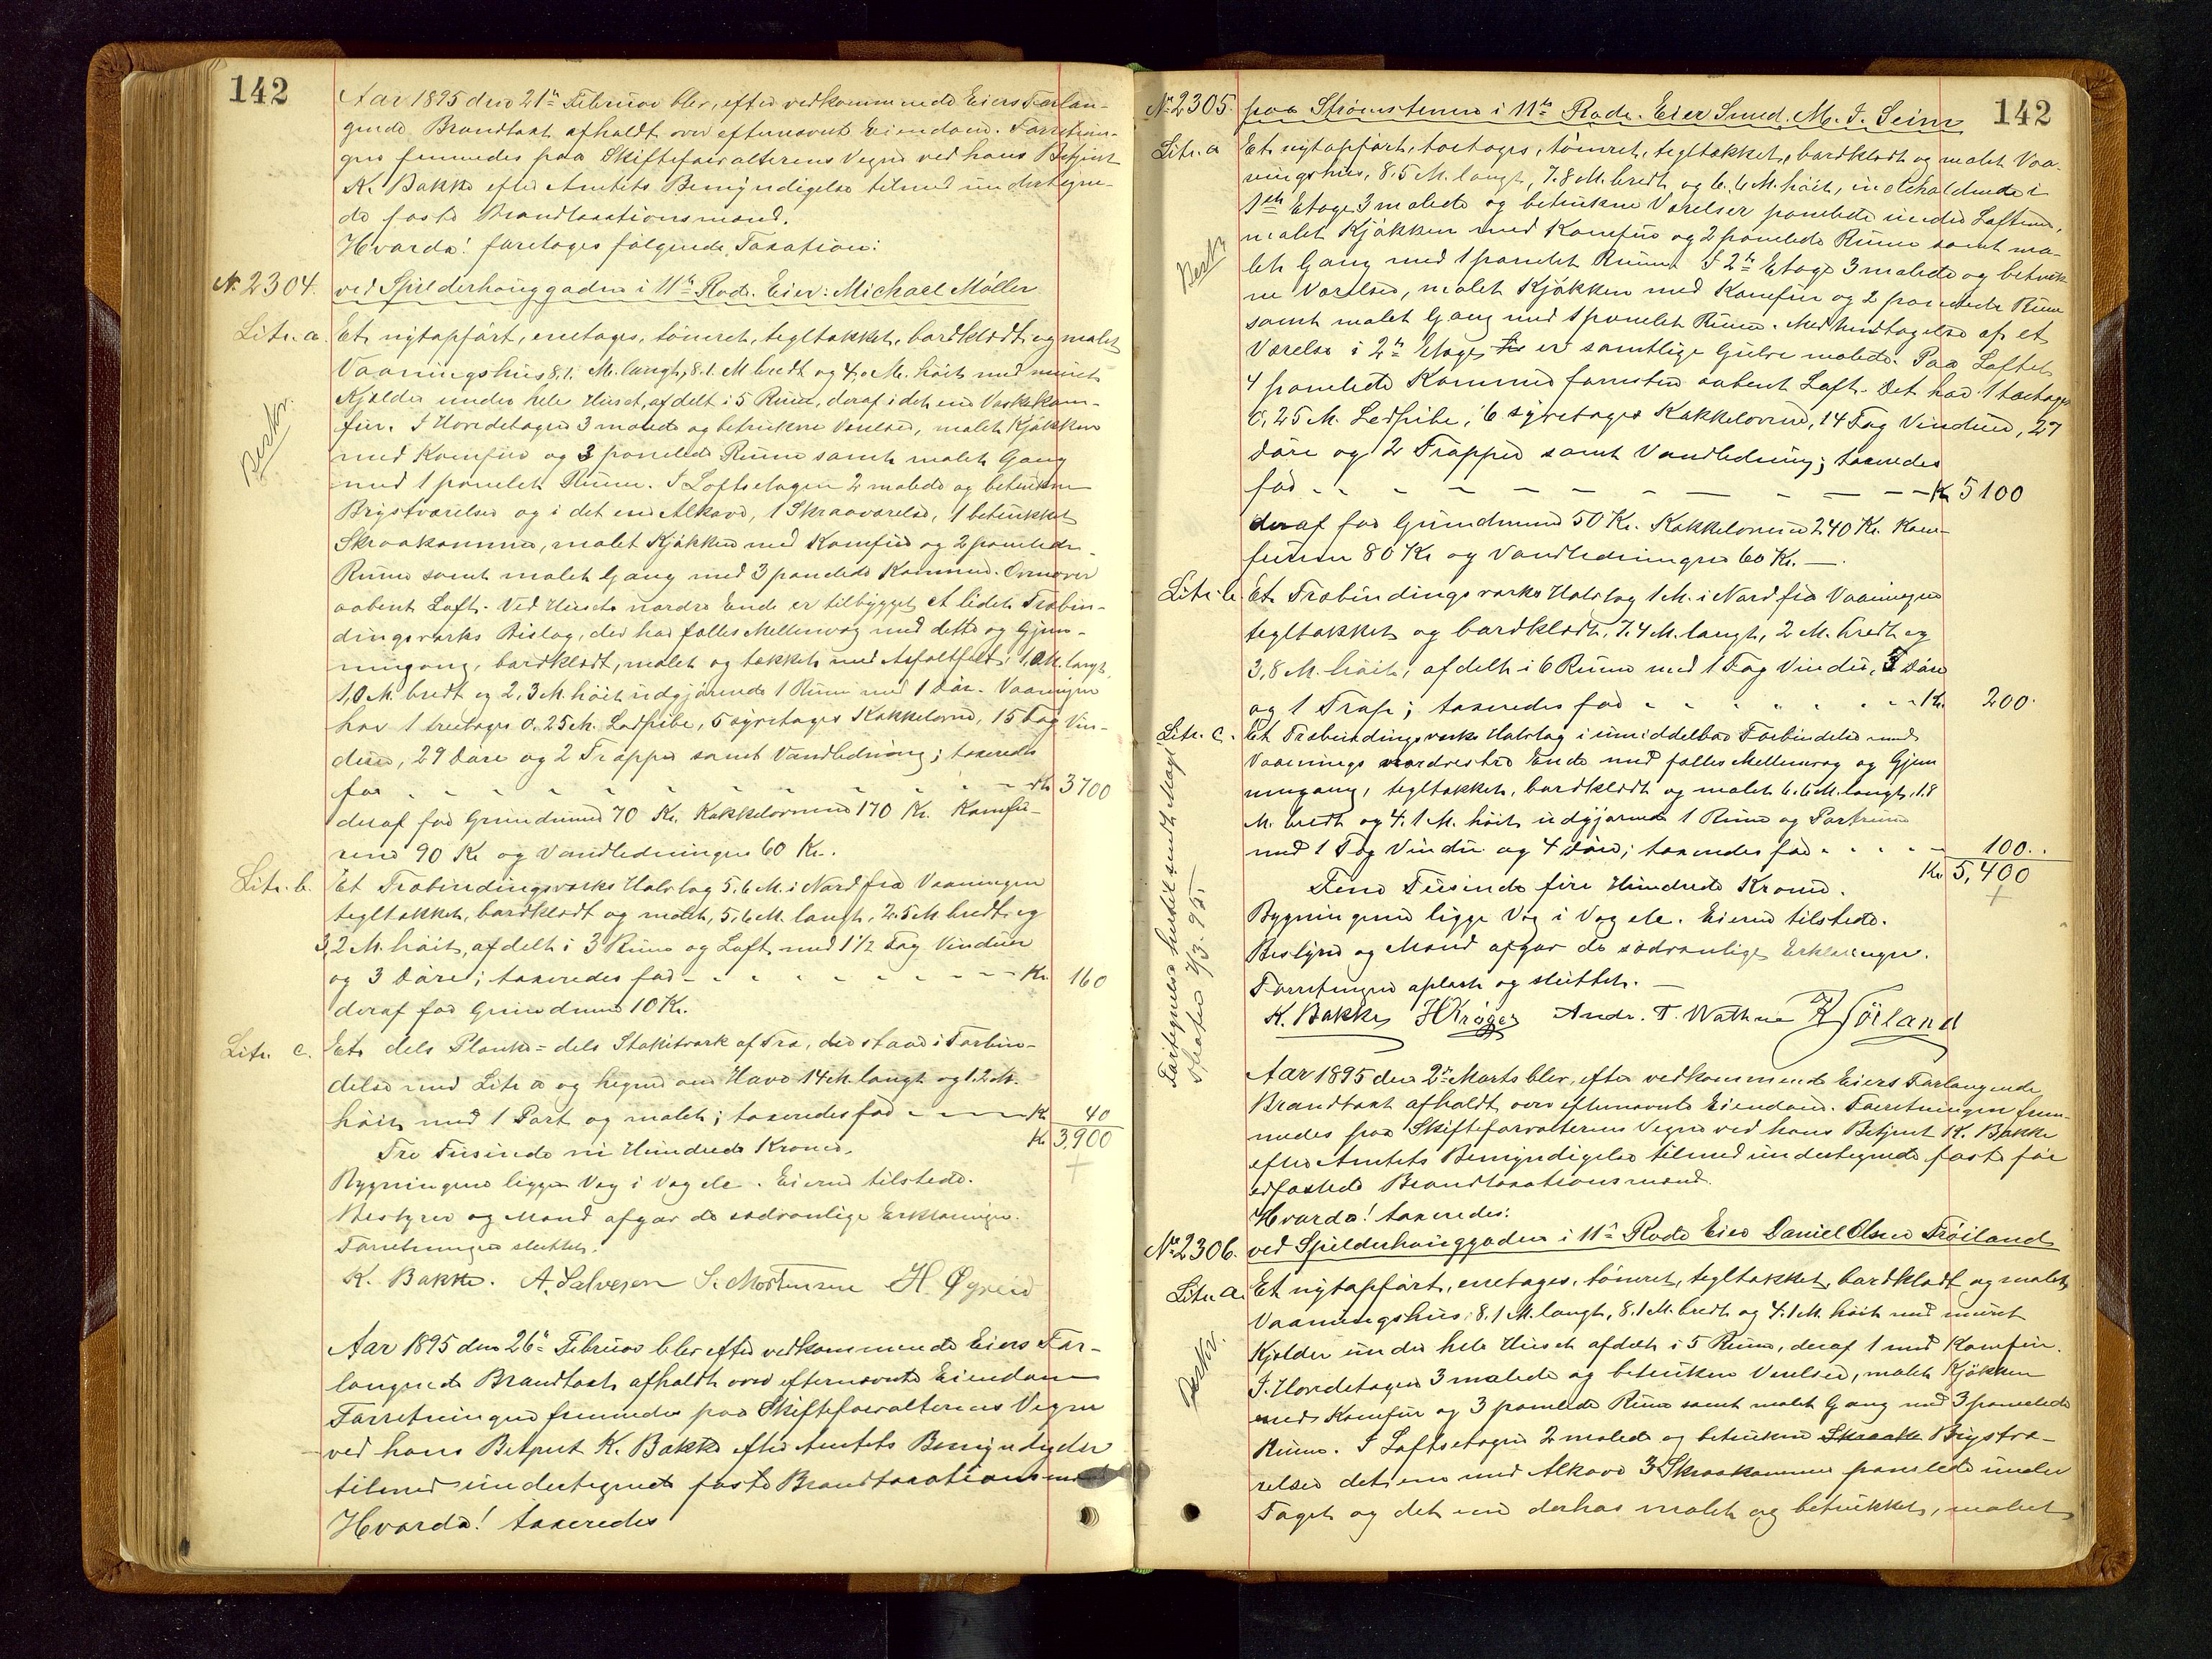 142
Aar 1895 den 21de Februar blev, efter vedkommende Eiers Forlan-
gende Brandtaxt afholdt over efternævnte Eiendom. Forretnin-
gen fremmedes paa Skifteforvalterens Vegne ved hans Betjent
K. Bakke efter Amtets Bemyndigelse tilmed undertegne-
de faste Brandtaxationsmænd.
Hvorda! foretoges følgende Taxation:
No 2304. ved Spilderhauggaden i 11te Rode. Eier: Michael Møller
Litr. a. Et nytopført, enetages, tømret, tegltækket, bordklædt og malet
Vaaningshus 8.1. M. langt, 8.1. M bredt og 4.0 M. høit med muret
Kjælder under hele Huset, afdelt i 5 Rum, deraf i det ene Vaskekom-
fur. I Hovedetagen 3 malede og betrukne Værelser, malet Kjøkken
med Komfur og 3 panelede Rum samt malet Gang
med 1 panelet Rum. I Loftsetagen 2 malede og betrukne
Brystværelser og i det ene Alkove, 1 Skraaværelse, 1 betrukket
Skraakammer, malet Kjøkken med Komfur og 2 panelede
Rum samt malet Gang med 3 panelede Kammer. Ovenover
aabent Loft. Ved Husets nordre Ende er tilbygget et lidet Træbin-
dingsværks Bislag, der har fælles Mellemvæg med dette og Gjen-
nemgang, bordklædt, malet og tækket med Asfaltfilt, 1,0 M. langt,
1,0 M. bredt og 2,3 M. høit udgjørende 1 Rum med 1 Dør. Vaaningen
har 1 treetages 0.25 M. Lodpibe, 5 syvetages Kakkelovne, 15 Fag Vin-
duer, 29 Døre og 2 Trapper samt Vandledning; taxeredes
for - - - - - Kr 3700
deraf for Grundmur 70 Kr. Kakkelovnene 170 Kr. Komfu-
rene 90 Kr og Vandledningen 60 Kr.
Litr. b. Et Træbindingsværks Halvtag 5.6 M. i Nord fra Vaaningen
tegltækket, bordklædt og malet, 5,6 M. langt, 2.5 M bredt og
3,2 M. høit, afdelt i 3 Rum og Loft med 1 1/2 Fag Vinduer
og 3 Døre; taxeredes for - - - - - Kr. 160
deraf for Grundmur 10 Kr.
Litr. c. Et dels Planke- dels Stakitværk af Træ, der staar i Forbin-
delse med Litr a og hegner om Have 14 M. langt og 1.2 M.
høit med 1 Port og malet; taxeredes for - - - Kr 40
Kr 3900
Tre Tusinde ni Hundrede Kroner.
Bygningene ligger Væg i Væg etc. Eieren tilstede.
Bestyrer og Mænd afgav de sædvanlige Erklæringer.
Forretningen sluttet.
K. Bakke. A. Salvesen S. Mortensen H. Øgreid
Aar 1895 den 26de Februar blev efter vedkommende Eiers For-
langende Brandtaxt afholdt over efternævnte Eiendom
Forretningen fremmedes paa Skifteforvalterens Vegne
ved hans Betjent K. Bakke efter Amtets Bemyndigelse
tilmed undertegnede faste Brandtaxationsmænd
Hvorda! taxeredes
Beskr.
142
No 2305. paa Strømstenen i 11te Rode. Eier Smed. M. I. Seim
Litr. a Et nytopført, toetages, tømret, tegltækket, bordklædt og malet Vaa-
ningshus, 8.5 M. langt, 7.8 M. bredt og 6.6 M. høit, indeholdende i
1ste Etage 3 malede og betrukne Værelser panelede under Loftene,
malet Kjøkken med Komfur og 2 panelede Rum samt ma-
let Gang med 1 panelet Rum. I 2den Etage 3 malede og betruk-
ne Værelser, malet Kjøkken med Komfur og 2 panelede Rum
samt malet Gang med 1 panelet Rum. Med Undtagelse af et
Værelse i 2den Etage er samtlige Gulve malede. Paa Loftet
4 panelede Kammer forresten aabent Loft. Det har 1 toetages
0,25 M. Lodpibe, 6 syvetages Kakkelovne, 14 Fag Vinduer, 27
Døre og 2 Trapper samt Vandledning; taxeredes
for - - - - - Kr 5100
deraf for Grundmur 50 Kr. Kakkelovne 240 Kr. Kom-
furene 80 Kr og Vandledningen 60 Kr. —
Litr. b. Et Træbindingsværks Halvtag 1 M. i Nord fra Vaaningen
tegltækket og bordklædt, 7.4 M. langt, 2 M. bredt og
3,8 M. høit, afdelt i 6 Rum med 1 Fag Vindu, 5 Døre
og 1 Trap; taxeredes for - - - - - Kr. 200.
Litr. c. Et Træbindingsværks Halvtag i umiddelbar Forbindelse med
Vaanings nordvestre Ende med fælles Mellemvæg og Gjen
nemgang, tegltækket, bordklædt og malet 6.6 M. langt, 1.8
M. bredt og 4.1 M. høit udgjørende 1 Rum og Portrum
med 1 Fag Vindu og 4 Døre; taxeredes for - - - 100..
Kr 5,400
Fem Tusinde fire Hundrede Kroner.
Bygningene ligge Væg i Væg etc. Eieren tilstede.
Bestyrer og Mænd afgav de sædvanlige Erklæringer.
Forretningen oplæst og sluttet. —
K. Bakke H Krøger Andr. T. Wathne K Sörland
Aar 1895 den 2den Marts blev, efter vedkommende Eiers Forlangende
Brandtaxt afholdt over efternævnte Eiendom. Forretningen frem-
medes paa Skifteforvalterens Vegne ved hans Betjent K. Bakke
efter Amtets Bemyndigelse tilmed undertegnede faste før
edfæstede Brandtaxationsmænd.
Hvorda! taxeredes:
No 2306. ved Spilderhauggaden i 11te Rode Eier Daniel Olsen Frøiland
Litr. a. Et nytopført, enetages, tømret, tegltækket, bordklædt og malet
Vaaningshus; 8.1 M. langt, 8.1 M. bredt og 4.1 M. høit med muret
Kjelder under hele Huset afdelt i 5 Rum, deraf 1 med Komfur.
I Hovedetagen 3 malede og betrukne Værelser, malet Kjøkken
med Komfur og 3 panelede Rum samt malet Gang med 3 panelede
Rum. I Loftsetagen 2 malede og betrukne Skraak Brystvæ-
relser det ene med Alkove 3 Skraakammer panelede under
Taget og det ene derhos malet og betrukket, malet
Beskr.
3/3. 95.
Beskr.